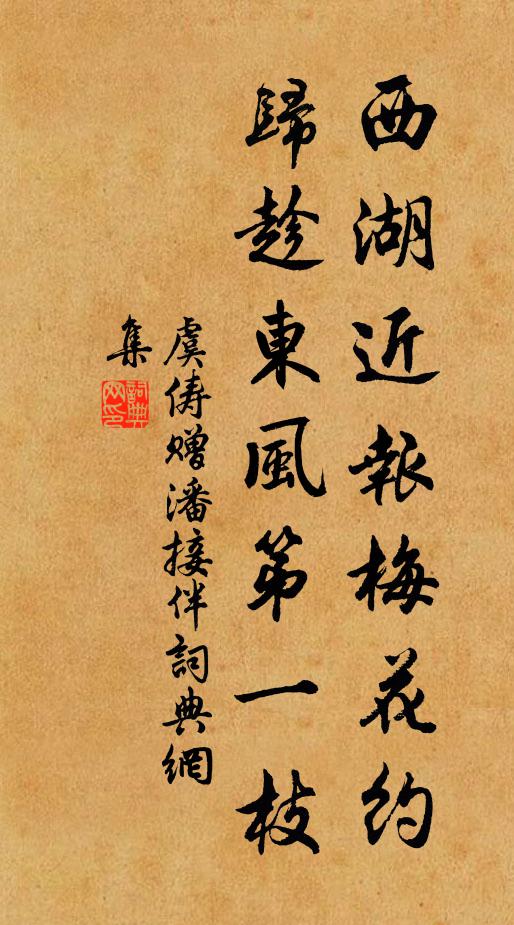 西湖近報梅花約
歸趁東風第一枝
虞儔贈潘接伴詞典網
集
詞典
網印